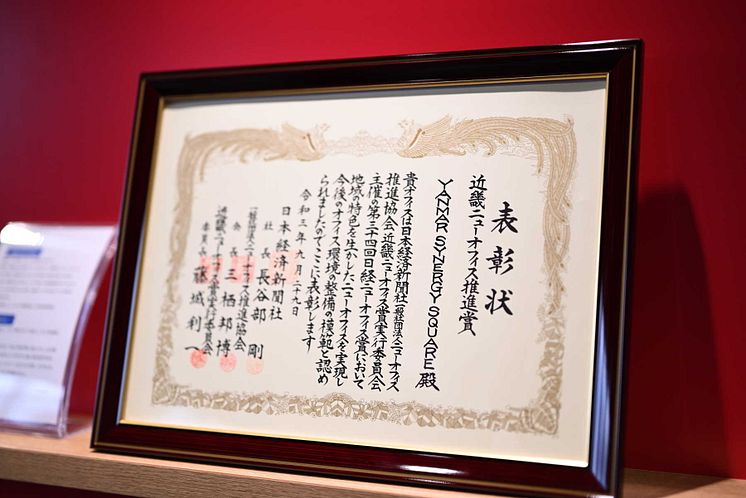 表彰状
近畿ニューオフィス推進賞
YANMAR SYNERGY SQUARE 殿
貴オフィスは日本経済新聞社 一般社団法人ニューオフィス
推進協会 近畿ニューオフィス賞実行委員会
主催の第三十四回日経ニューオフィス賞において
地域の特色を生かしたニューオフィスを実現し
今後のオフィス環境の整備の模範と認め
られましたのでここに表彰します
令和三年九月二十九日
日本経済新聞社
社長 長谷部 剛
一般社団法人ニューオフィス推進協会
会長 三栖邦博
近畿ニューオフィス賞実行委員会
委員長 藤城利一